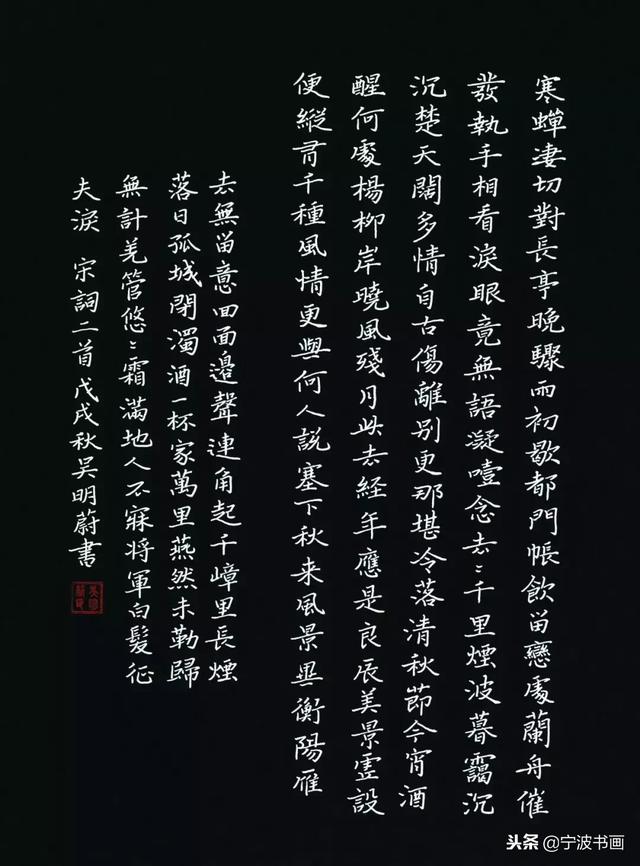 寒蟬淒切對長亭晚驟雨初歇都門帳飲畱戀處蘭舟催
發執手相看淚眼竟無語凝噎念去〻千里煙波暮靄沉
沉楚天闊多情自古傷離別更那堪冷落清秋節今宵酒
醒何處楊柳岸曉風殘月此去經年應是良辰美景虛設
便縱有千種風情更與何人說塞下秋来風景異衡陽雁
去無畱意四面邊聲連角起千嶂里長煙
落日孤城閉濁酒一杯家萬里燕然未勒歸
無計羌管悠〻霜滿地人不寐将軍白髮征
夫淚 宋詞二首戊戌秋吳明蔚書
头条@宁波书画